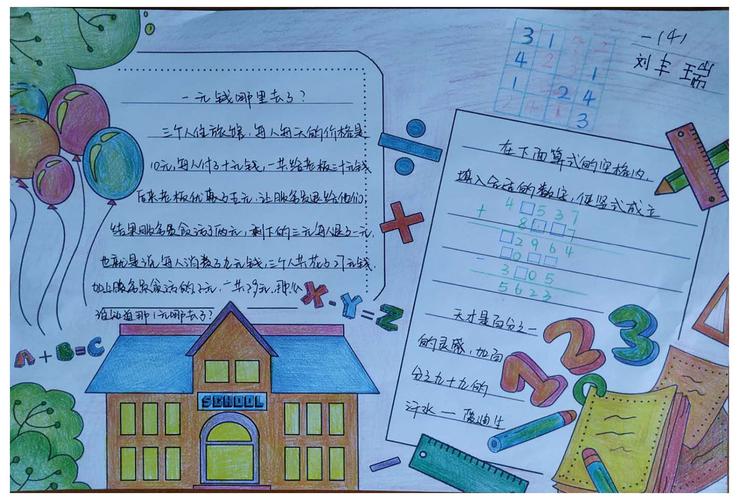 一元钱哪里去了？
三个人住旅馆，每人每天的价格是
10元，每人付了十元钱，一共给老板三十元钱
后来老板优惠了五元，让服务员退给他们
结果服务员贪污了两元，剩下的三元每人退了一元，
也就是说，每人消费了九元钱，三个人共花了27元钱，
加上服务员贪污的2元，一共29元，那么
谁知道那1元哪去了？
X-Y=Z
A+B=C
SCHOOL
3 1
4 1
1 2 4
3
一(4)
刘丰瑞
在下面算式的空格内，
填入合适的数字，使竖式成立
4□537
+ 8□□7
□2964
- □0□□
3□05
5623
天才是百分之一
的灵感，加百
分之九十九的
汗水——爱迪生
123